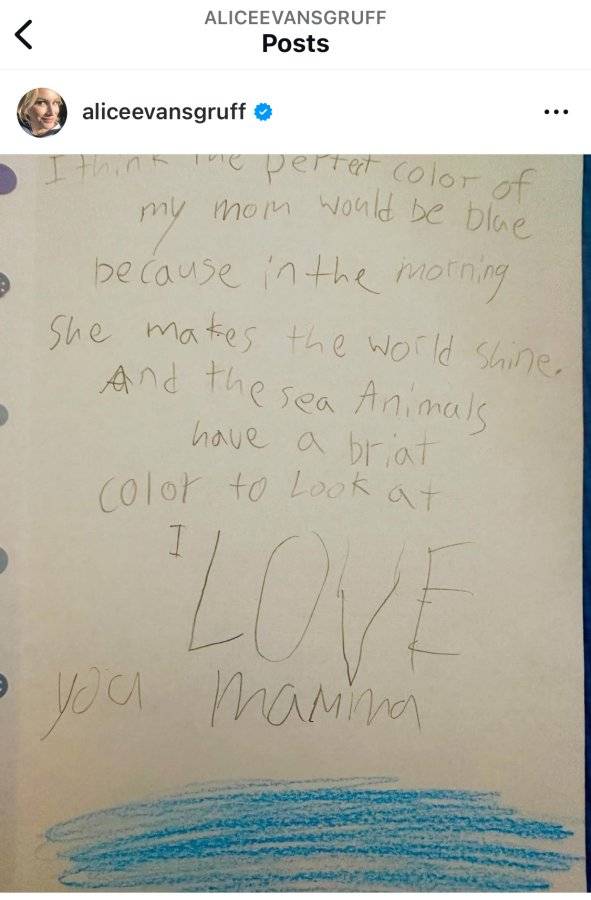 ALICEEVANSGRUFF
Posts
aliceevansgruff
I think the perfat color of
my mom would be blue
because in the morning
She makes the world shine.
And the sea Animals
have a briat
color to Look at
I LOVE
you mamma